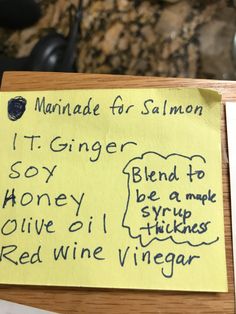 Marinade for Salmon
1 T. Ginger
Soy
Honey
Olive oil
Red wine Vinegar
Blend to
be a maple
syrup
thickness